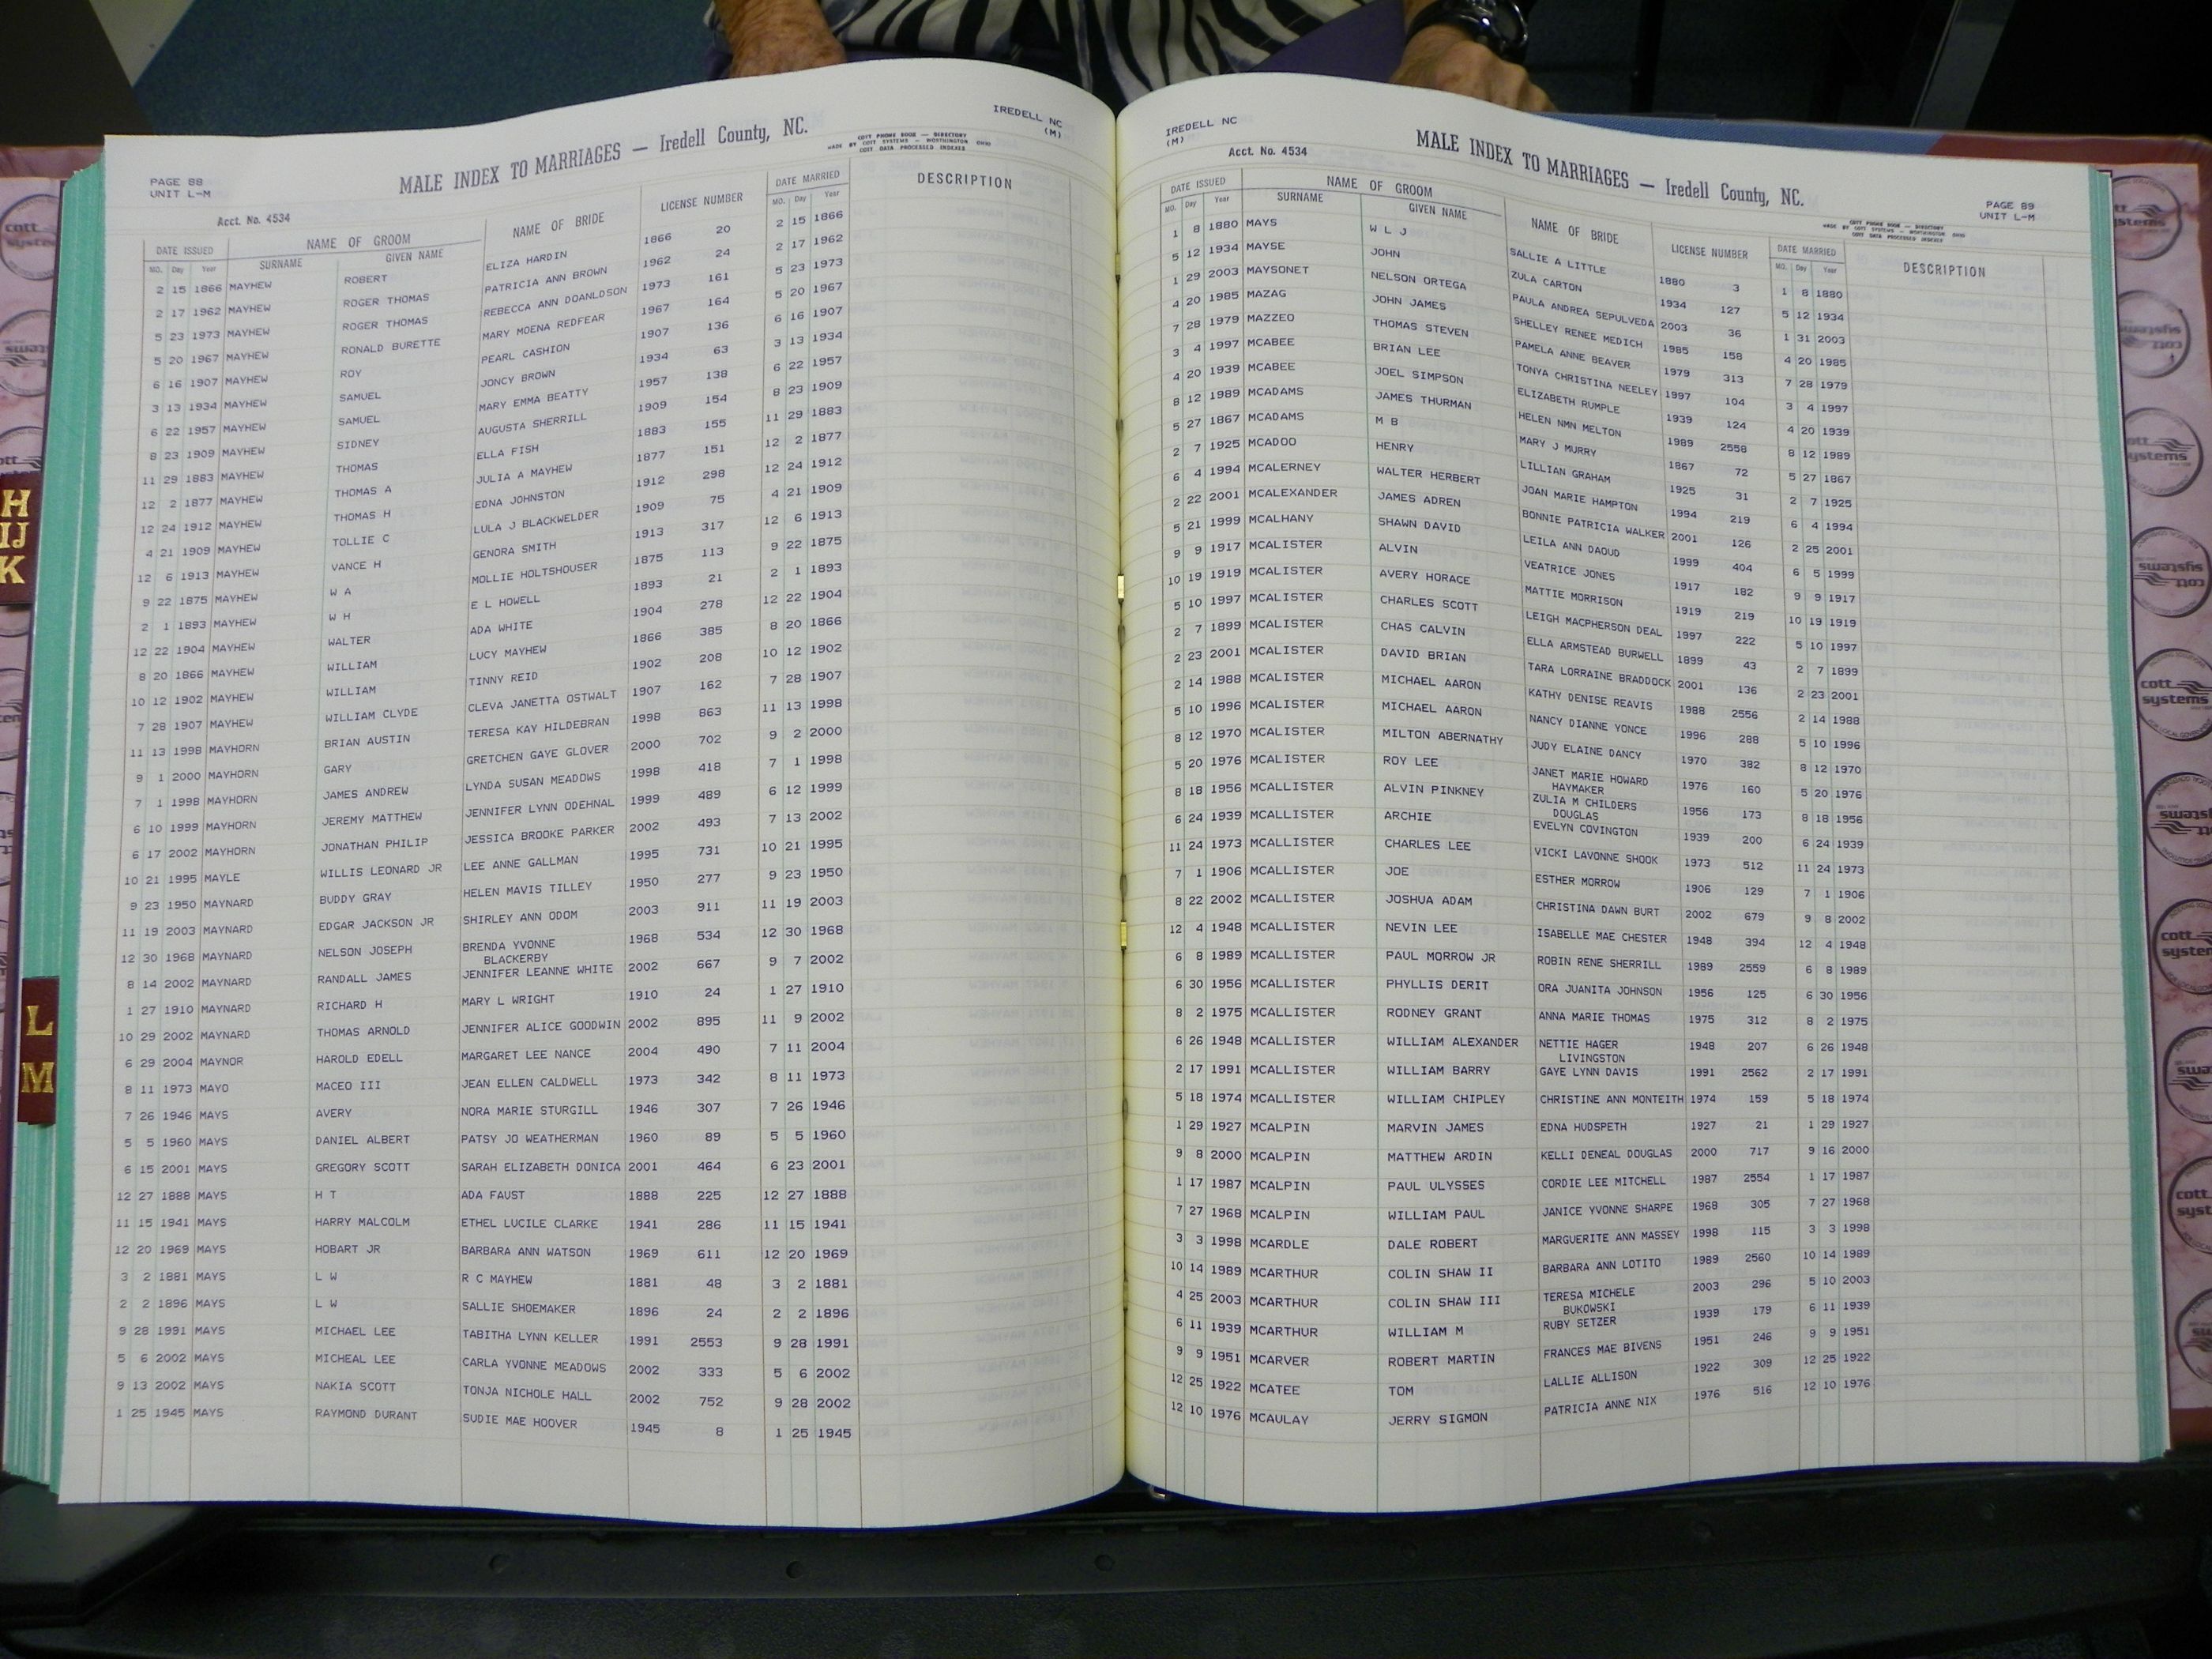 IREDELL NC
(M)
MALE INDEX TO MARRIAGES — Iredell County, NC.
COTT PHONE BOOK — DIRECTORY
MADE BY COTT SYSTEMS — WORTHINGTON OHIO
COTT DATA PROCESSED INDEXES
PAGE 88
UNIT L-M
Acct. No. 4534
DATE ISSUED NAME OF GROOM NAME OF BRIDE LICENSE NUMBER DATE MARRIED DESCRIPTION
MO. Day Year SURNAME GIVEN NAME MO. Day Year
2 15 1866 MAYHEW ROBERT ELIZA HARDIN 1866 20 2 15 1866
2 17 1962 MAYHEW ROGER THOMAS PATRICIA ANN BROWN 1962 24 2 17 1962
5 23 1973 MAYHEW ROGER THOMAS REBECCA ANN DOANLDSON 1973 161 5 23 1973
5 20 1967 MAYHEW RONALD BURETTE MARY MOENA REDFEAR 1967 164 5 20 1967
6 16 1907 MAYHEW ROY PEARL CASHION 1907 136 6 16 1907
3 13 1934 MAYHEW SAMUEL JONCY BROWN 1934 63 3 13 1934
6 22 1957 MAYHEW SAMUEL MARY EMMA BEATTY 1957 138 6 22 1957
8 23 1909 MAYHEW SIDNEY AUGUSTA SHERRILL 1909 154 8 23 1909
11 29 1883 MAYHEW THOMAS ELLA FISH 1883 155 11 29 1883
12 2 1877 MAYHEW THOMAS A JULIA A MAYHEW 1877 151 12 2 1877
12 24 1912 MAYHEW THOMAS H EDNA JOHNSTON 1912 298 12 24 1912
4 21 1909 MAYHEW TOLLIE C LULA J BLACKWELDER 1909 75 4 21 1909
12 6 1913 MAYHEW VANCE H GENORA SMITH 1913 317 12 6 1913
9 22 1875 MAYHEW W A MOLLIE HOLTSHOUSER 1875 113 9 22 1875
2 1 1893 MAYHEW W H E L HOWELL 1893 21 2 1 1893
12 22 1904 MAYHEW WALTER ADA WHITE 1904 278 12 22 1904
8 20 1866 MAYHEW WILLIAM LUCY MAYHEW 1866 385 8 20 1866
10 12 1902 MAYHEW WILLIAM TINNY REID 1902 208 10 12 1902
7 28 1907 MAYHEW WILLIAM CLYDE CLEVA JANETTA OSTWALT 1907 162 7 28 1907
11 13 1998 MAYHORN BRIAN AUSTIN TERESA KAY HILDEBRAN 1998 863 11 13 1998
9 1 2000 MAYHORN GARY GRETCHEN GAYE GLOVER 2000 702 9 2 2000
7 1 1998 MAYHORN JAMES ANDREW LYNDA SUSAN MEADOWS 1998 418 7 1 1998
6 10 1999 MAYHORN JEREMY MATTHEW JENNIFER LYNN ODEHNAL 1999 489 6 12 1999
6 17 2002 MAYHORN JONATHAN PHILIP JESSICA BROOKE PARKER 2002 493 7 13 2002
10 21 1995 MAYLE WILLIS LEONARD JR LEE ANNE GALLMAN 1995 731 10 21 1995
9 23 1950 MAYNARD BUDDY GRAY HELEN MAVIS TILLEY 1950 277 9 23 1950
11 19 2003 MAYNARD EDGAR JACKSON JR SHIRLEY ANN ODOM 2003 911 11 19 2003
12 30 1968 MAYNARD NELSON JOSEPH BRENDA YVONNE 1968 534 12 30 1968
BLACKERBY
8 14 2002 MAYNARD RANDALL JAMES JENNIFER LEANNE WHITE 2002 667 9 7 2002
1 27 1910 MAYNARD RICHARD H MARY L WRIGHT 1910 24 1 27 1910
10 29 2002 MAYNARD THOMAS ARNOLD JENNIFER ALICE GOODWIN 2002 895 11 9 2002
6 29 2004 MAYNOR HAROLD EDELL MARGARET LEE NANCE 2004 490 7 11 2004
8 11 1973 MAYO MACEO III JEAN ELLEN CALDWELL 1973 342 8 11 1973
7 26 1946 MAYS AVERY NORA MARIE STURGILL 1946 307 7 26 1946
5 5 1960 MAYS DANIEL ALBERT PATSY JO WEATHERMAN 1960 89 5 5 1960
6 15 2001 MAYS GREGORY SCOTT SARAH ELIZABETH DONICA 2001 464 6 23 2001
12 27 1888 MAYS H T ADA FAUST 1888 225 12 27 1888
11 15 1941 MAYS HARRY MALCOLM ETHEL LUCILE CLARKE 1941 286 11 15 1941
12 20 1969 MAYS HOBART JR BARBARA ANN WATSON 1969 611 12 20 1969
3 2 1881 MAYS L W R C MAYHEW 1881 48 3 2 1881
2 2 1896 MAYS L W SALLIE SHOEMAKER 1896 24 2 2 1896
9 28 1991 MAYS MICHAEL LEE TABITHA LYNN KELLER 1991 2553 9 28 1991
5 6 2002 MAYS MICHEAL LEE CARLA YVONNE MEADOWS 2002 333 5 6 2002
9 13 2002 MAYS NAKIA SCOTT TONJA NICHOLE HALL 2002 752 9 28 2002
1 25 1945 MAYS RAYMOND DURANT SUDIE MAE HOOVER 1945 8 1 25 1945
IREDELL NC
(M)
Acct. No. 4534
MALE INDEX TO MARRIAGES — Iredell County, NC.
PAGE 89
UNIT L-M
COTT PHONE BOOK — DIRECTORY
MADE BY COTT SYSTEMS — WORTHINGTON OHIO
COTT DATA PROCESSED INDEXES
DATE ISSUED NAME OF GROOM NAME OF BRIDE LICENSE NUMBER DATE MARRIED DESCRIPTION
MO. Day Year SURNAME GIVEN NAME MO. Day Year
1 8 1880 MAYS W L J SALLIE A LITTLE 1880 3 1 8 1880
5 12 1934 MAYSE JOHN ZULA CARTON 1934 127 5 12 1934
1 29 2003 MAYSONET NELSON ORTEGA PAULA ANDREA SEPULVEDA 2003 36 1 31 2003
4 20 1985 MAZAG JOHN JAMES SHELLEY RENEE MEDICH 1985 158 4 20 1985
7 28 1979 MAZZEO THOMAS STEVEN PAMELA ANNE BEAVER 1979 313 7 28 1979
3 4 1997 MCABEE BRIAN LEE TONYA CHRISTINA NEELEY 1997 104 3 4 1997
4 20 1939 MCABEE JOEL SIMPSON ELIZABETH RUMPLE 1939 124 4 20 1939
8 12 1989 MCADAMS JAMES THURMAN HELEN NMN MELTON 1989 2558 8 12 1989
5 27 1867 MCADAMS M B MARY J MURRY 1867 72 5 27 1867
2 7 1925 MCADOO HENRY LILLIAN GRAHAM 1925 31 2 7 1925
6 4 1994 MCALERNEY WALTER HERBERT JOAN MARIE HAMPTON 1994 219 6 4 1994
2 22 2001 MCALEXANDER JAMES ADREN BONNIE PATRICIA WALKER 2001 126 2 25 2001
5 21 1999 MCALHANY SHAWN DAVID LEILA ANN DAOUD 1999 404 6 5 1999
9 9 1917 MCALISTER ALVIN VEATRICE JONES 1917 182 9 9 1917
10 19 1919 MCALISTER AVERY HORACE MATTIE MORRISON 1919 219 10 19 1919
5 10 1997 MCALISTER CHARLES SCOTT LEIGH MACPHERSON DEAL 1997 222 5 10 1997
2 7 1899 MCALISTER CHAS CALVIN ELLA ARMSTEAD BURWELL 1899 43 2 7 1899
2 23 2001 MCALISTER DAVID BRIAN TARA LORRAINE BRADDOCK 2001 136 2 23 2001
2 14 1988 MCALISTER MICHAEL AARON KATHY DENISE REAVIS 1988 2556 2 14 1988
5 10 1996 MCALISTER MICHAEL AARON NANCY DIANNE YONCE 1996 288 5 10 1996
8 12 1970 MCALISTER MILTON ABERNATHY JUDY ELAINE DANCY 1970 382 8 12 1970
5 20 1976 MCALISTER ROY LEE JANET MARIE HOWARD 1976 160 5 20 1976
HAYMAKER
8 18 1956 MCALLISTER ALVIN PINKNEY ZULIA M CHILDERS 1956 173 8 18 1956
DOUGLAS
6 24 1939 MCALLISTER ARCHIE EVELYN COVINGTON 1939 200 6 24 1939
11 24 1973 MCALLISTER CHARLES LEE VICKI LAVONNE SHOOK 1973 512 11 24 1973
7 1 1906 MCALLISTER JOE ESTHER MORROW 1906 129 7 1 1906
8 22 2002 MCALLISTER JOSHUA ADAM CHRISTINA DAWN BURT 2002 679 9 8 2002
12 4 1948 MCALLISTER NEVIN LEE ISABELLE MAE CHESTER 1948 394 12 4 1948
6 8 1989 MCALLISTER PAUL MORROW JR ROBIN RENE SHERRILL 1989 2559 6 8 1989
6 30 1956 MCALLISTER PHYLLIS DERIT ORA JUANITA JOHNSON 1956 125 6 30 1956
8 2 1975 MCALLISTER RODNEY GRANT ANNA MARIE THOMAS 1975 312 8 2 1975
6 26 1948 MCALLISTER WILLIAM ALEXANDER NETTIE HAGER 1948 207 6 26 1948
LIVINGSTON
2 17 1991 MCALLISTER WILLIAM BARRY GAYE LYNN DAVIS 1991 2562 2 17 1991
5 18 1974 MCALLISTER WILLIAM CHIPLEY CHRISTINE ANN MONTEITH 1974 159 5 18 1974
1 29 1927 MCALPIN MARVIN JAMES EDNA HUDSPETH 1927 21 1 29 1927
9 8 2000 MCALPIN MATTHEW ARDIN KELLI DENEAL DOUGLAS 2000 717 9 16 2000
1 17 1987 MCALPIN PAUL ULYSSES CORDIE LEE MITCHELL 1987 2554 1 17 1987
7 27 1968 MCALPIN WILLIAM PAUL JANICE YVONNE SHARPE 1968 305 7 27 1968
3 3 1998 MCARDLE DALE ROBERT MARGUERITE ANN MASSEY 1998 115 3 3 1998
10 14 1989 MCARTHUR COLIN SHAW II BARBARA ANN LOTITO 1989 2560 10 14 1989
4 25 2003 MCARTHUR COLIN SHAW III TERESA MICHELE 2003 296 5 10 2003
BUKOWSKI
6 11 1939 MCARTHUR WILLIAM M RUBY SETZER 1939 179 6 11 1939
9 9 1951 MCARVER ROBERT MARTIN FRANCES MAE BIVENS 1951 246 9 9 1951
12 25 1922 MCATEE TOM LALLIE ALLISON 1922 309 12 25 1922
12 10 1976 MCAULAY JERRY SIGMON PATRICIA ANNE NIX 1976 516 12 10 1976
H
IJ
K
L
M
cott
systems